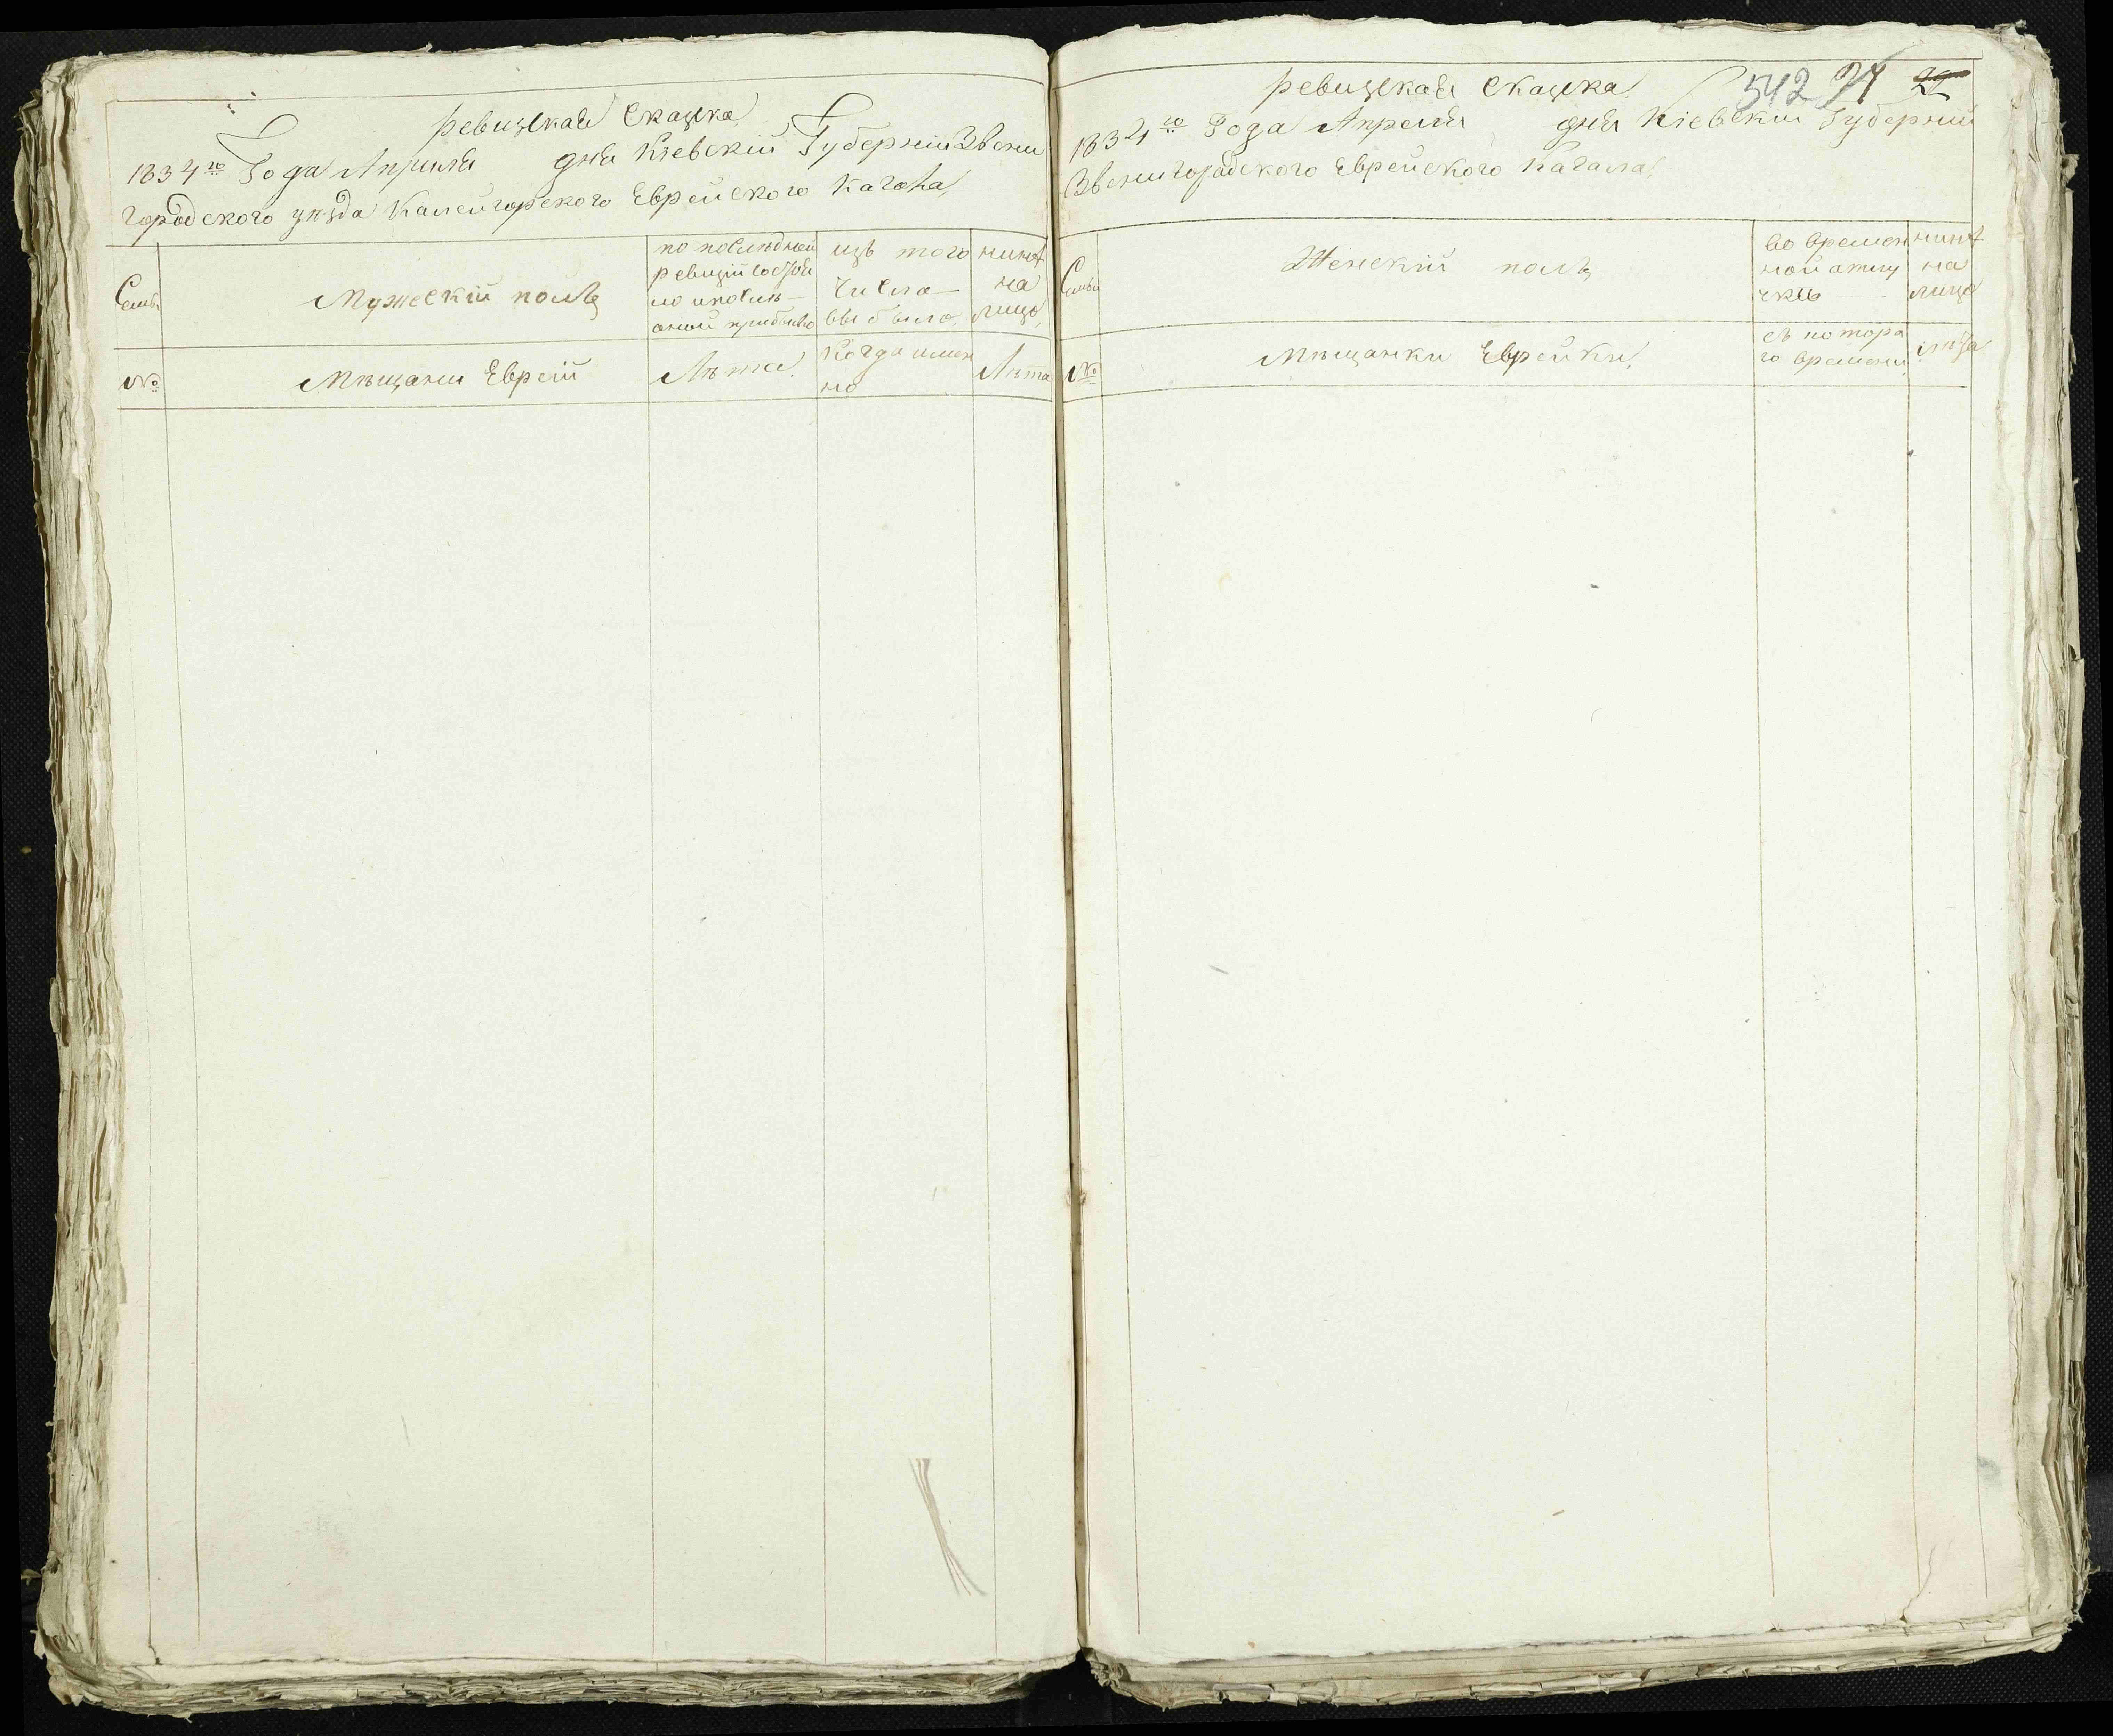 Ревизская Сказка
1834го Года Априля дня Кіевскій Губерніи Звени
городского уезда Калейгорского Еврейского Кагала
Семьи
Мужескій полъ
по последней
ревизіи состоя
ло и после
оной прибыло
изъ того
Числа
выбыло
ныне
на
лицо
№
Мещани Еврей
Лета
Когда имен
но
Лета
Ревизская Сказка
542 22
1834го Года Апреля дня Кіевскій Губерній
Звенигородского Еврейского Кагала
Семьи
Женскій полъ
во времен
ной отлу
чке
ныне
на
лицо
№
Мещанки Еврейки
съ котора
го времени
лета